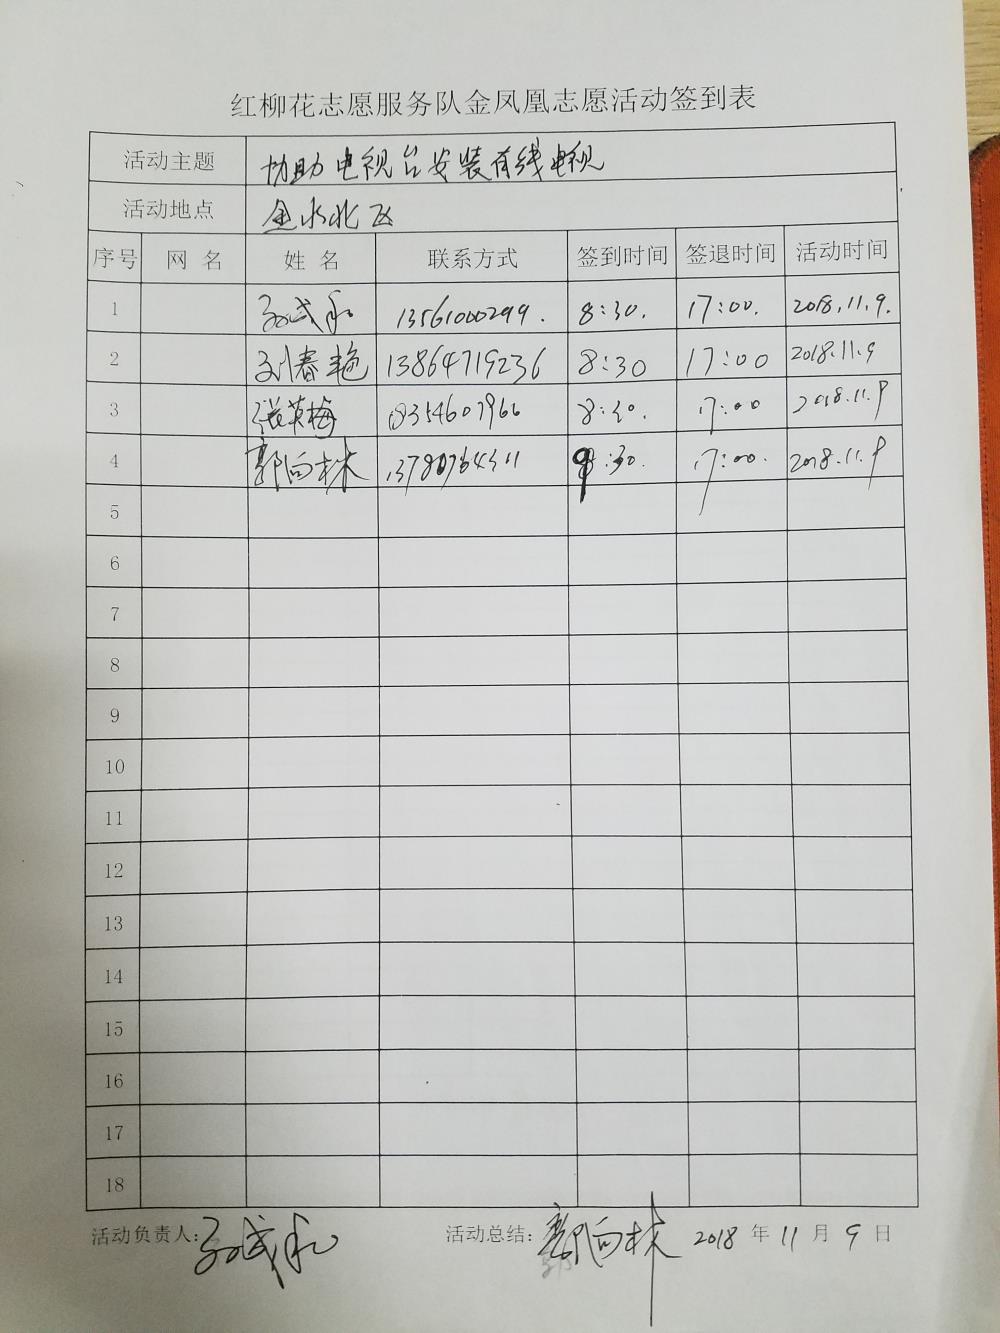 红柳花志愿服务队金凤凰志愿活动签到表
活动主题 协助电视台安装有线电视
活动地点 金水北区
序号 网 名 姓 名 联系方式 签到时间 签退时间 活动时间
1 13561000299. 8:30. 17:00. 2018.11.9.
2 刘春艳 13864719236 8:30 17:00 2018.11.9
3 张英梅 18354607966 8:30. 17:00 2018.11.9
4 郭向林 13780764311 8:30. 17:00. 2018.11.9
5
6
7
8
9
10
11
12
13
14
15
16
17
18
活动负责人: 活动总结: 郭向林 2018 年 11 月 9 日